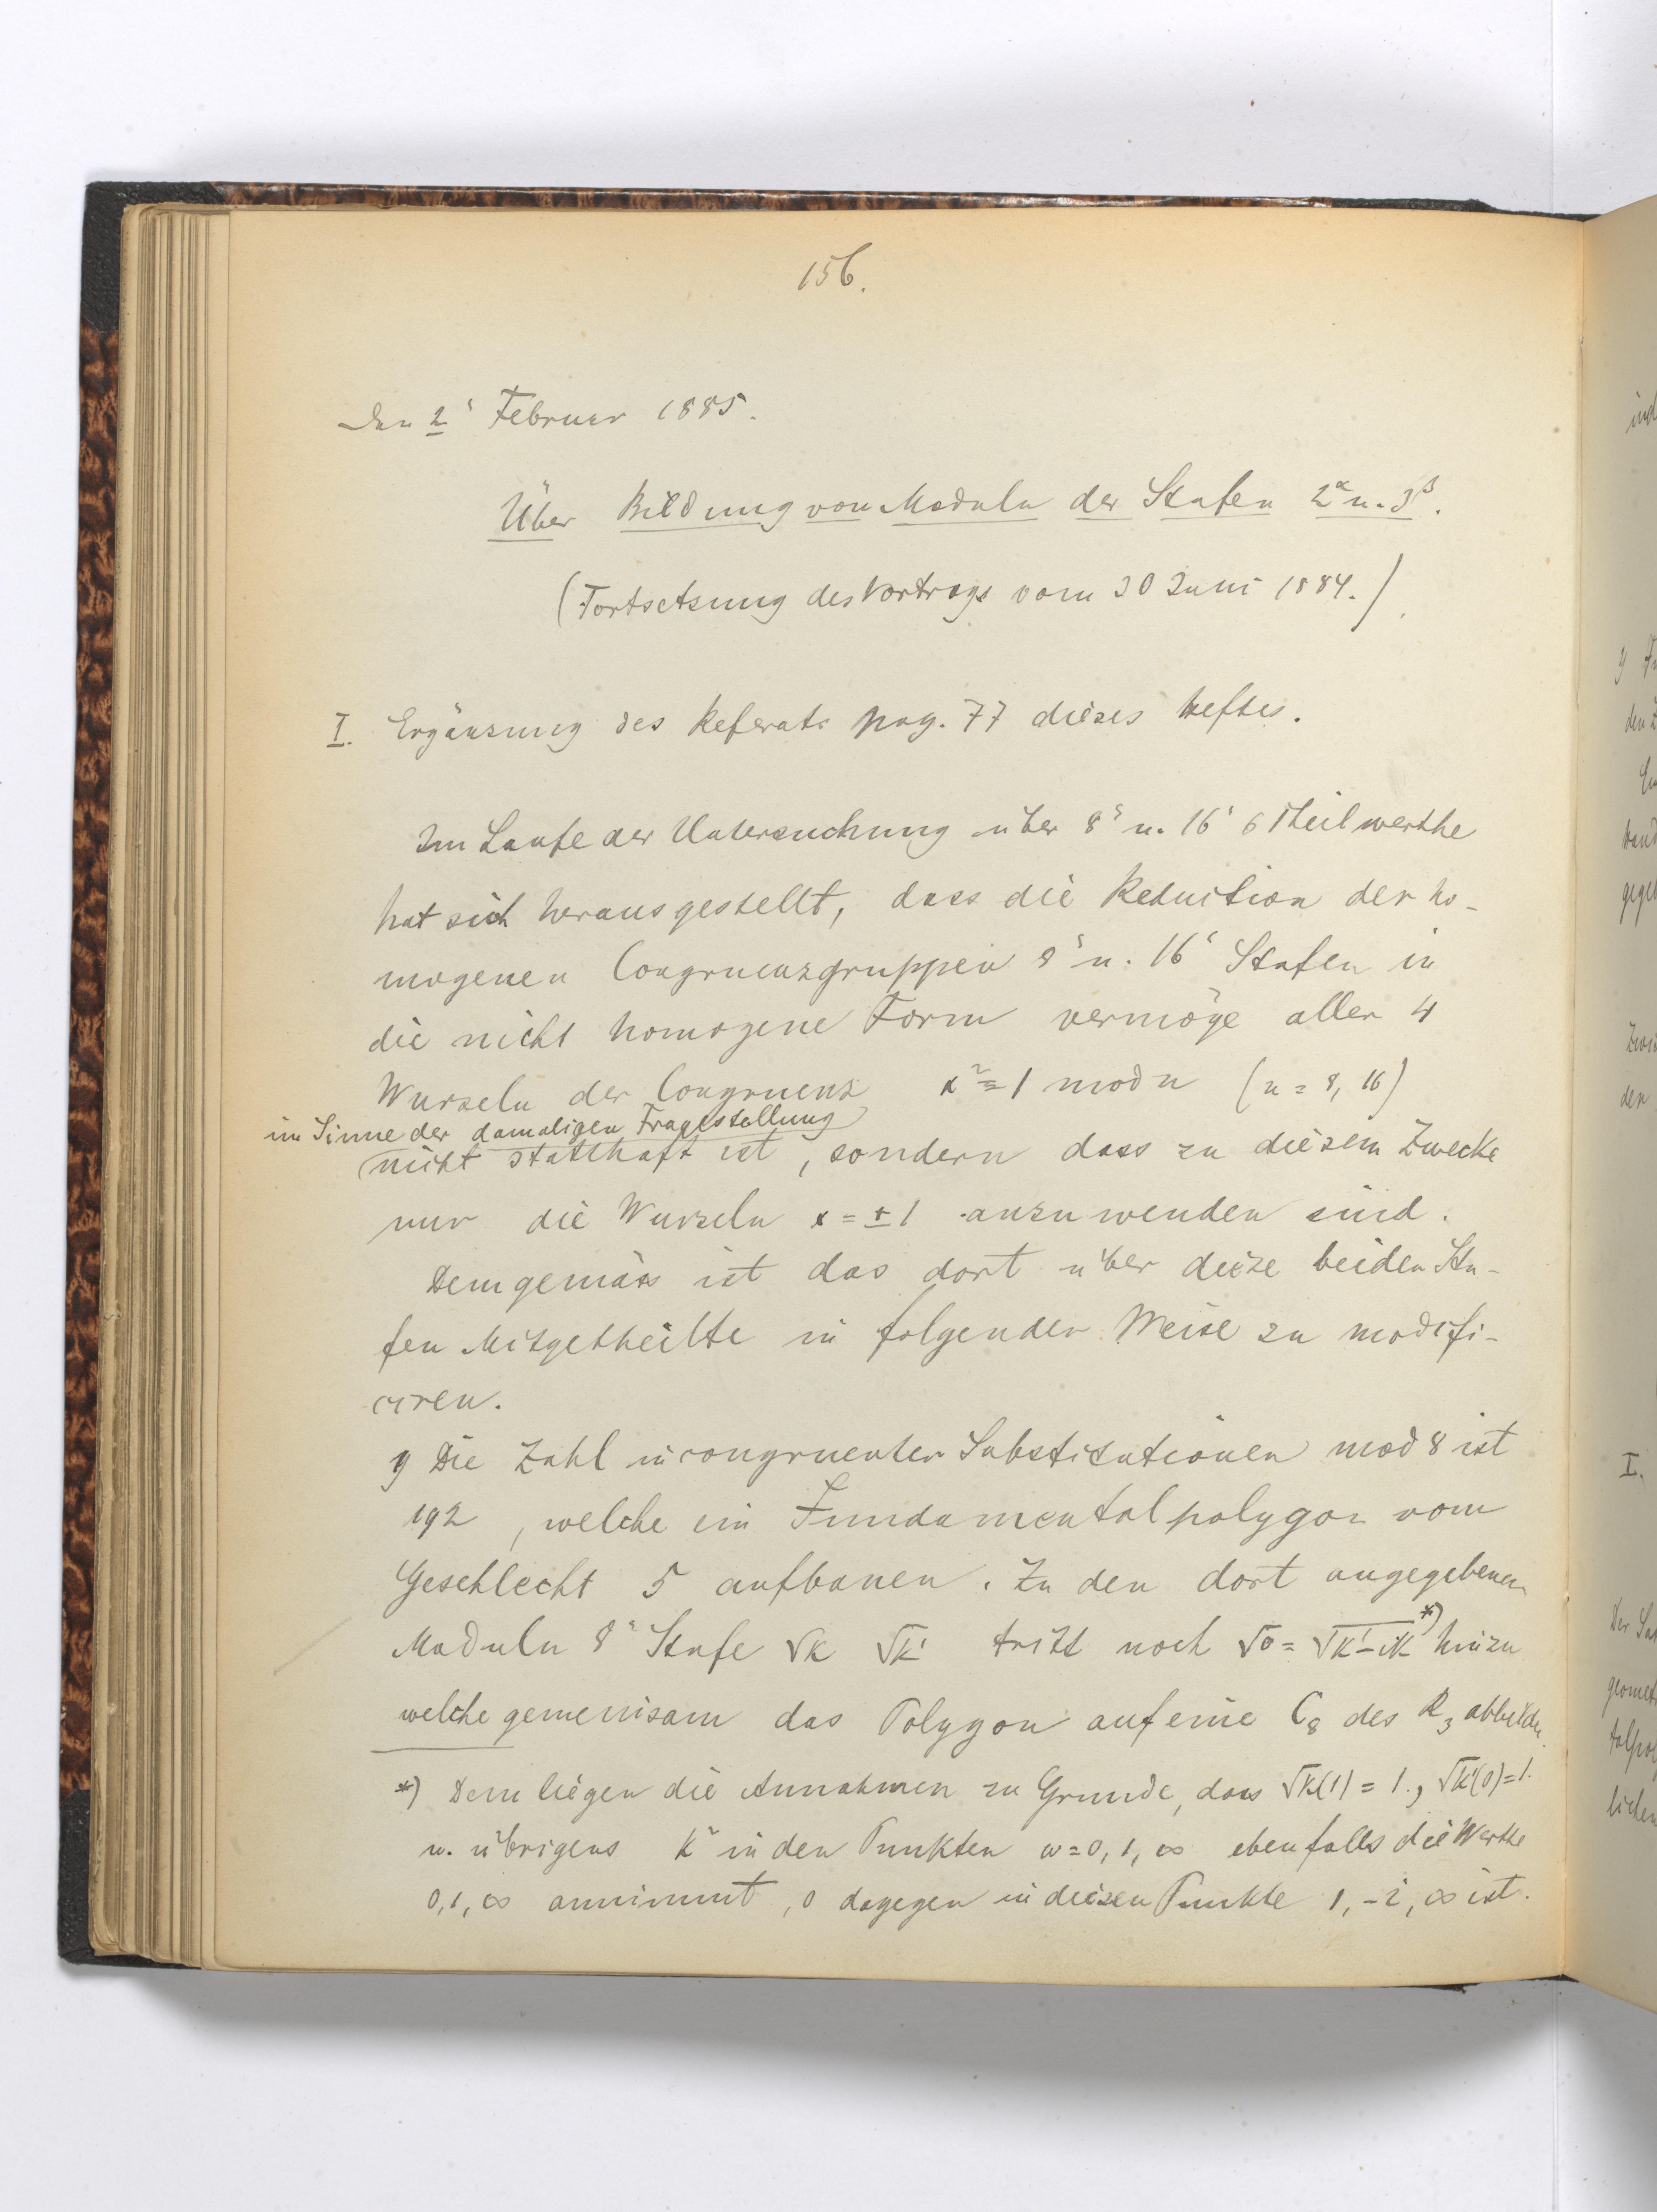 156.
Den 2' Februar 1885.
Über Bildung von Moduln der Stufen 2^α u. 3^β.
(Fortsetzung des Vortrags vom 30 Juni 1884.)
I. Ergänzung des Referats pag. 77 dieses Heftes.
Im Laufe der Untersuchung über 8' u. 16' 6 Theilwerthe
hat sich herausgestellt, dass die Reduction der ho-
mogenen Congruenzgruppen 8' u. 16' Stufen in
die nicht homogene Form vermöge aller 4
Wurzeln der Congruenz x² ≡ 1 mod n (n = 8, 16)
im Sinne der damaligen Fragestellung
nicht statthaft ist, sondern dass zu diesem Zwecke
nur die Wurzeln x = ±1 anzuwenden sind.
Demgemäss ist das dort über diese beiden Stu-
fen Mitgetheilte in folgender Weise zu modifi-
ciren.
Die Zahl incongruenter Substitutionen mod 8 ist
192, welche ein Fundamentalpolygon vom
Geschlecht 5 aufbauen. Zu den dort angegebenen
Moduln 8' Stufe √k √k' tritt noch √σ = √k'-ik *) hinzu
welche gemeinsam das Polygon auf eine C₈ des R₃ abbilden.
*) Dem liegen die Annahmen zu Grunde, dass √k(1) = 1., √k'(0) = 1.
u. übrigens k² in den Punkten ω = 0, 1, ∞ ebenfalls die Werthe
0, 1, ∞ annimmt, σ dagegen in diesen Punkte 1, -i, ∞ ist.